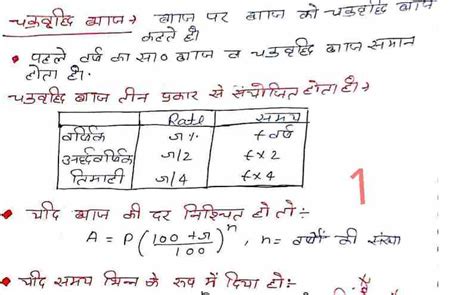 चक्रवृद्धि ब्याज → ब्याज पर ब्याज को चक्रवृद्धि ब्याज
कहते हैं।
• पहले वर्ष का सा० ब्याज व चक्रवृद्धि ब्याज समान
होता है।
चक्रवृद्धि ब्याज तीन प्रकार से संयोजित होता है।→
Rate समय
वार्षिक r% t वर्ष
अर्द्धवार्षिक r/2 t×2
तिमाही r/4 t×4
1
• यदि ब्याज की दर निश्चित हो तो :-
A = P(100+r/100)^n, n = वर्षों की संख्या
• यदि समय भिन्न के रूप में दिया हो :-